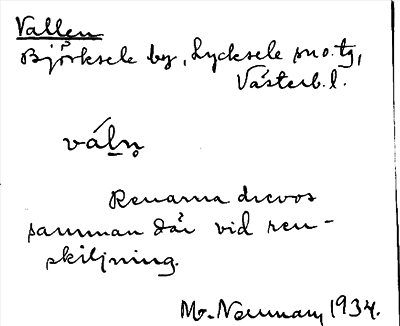 Vallen
Björksele by, Lycksele sn o. tg,
Västerb. l.
váln̥
Renarna drevos
samman där vid ren-
skiljning.
M. Neuman, 1934.